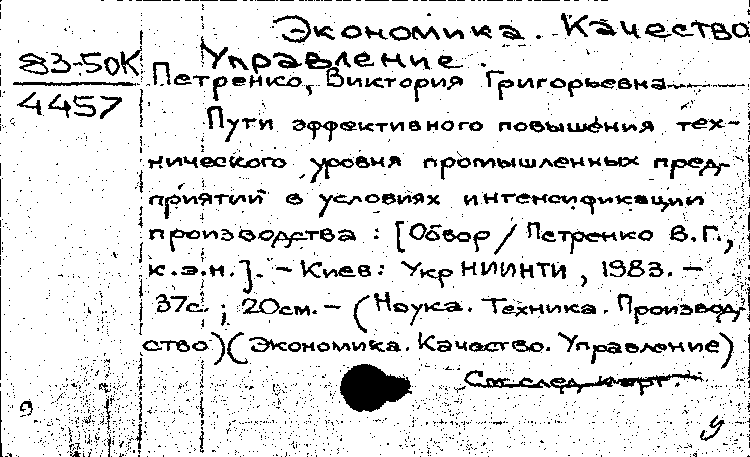 Экономика. Качество
Управление.
83-50К
4457
Петренко, Виктория Григорьевна
Пути эффективного повышения тех-
нического уровня промышленных пред-
приятий в условиях интенсификации
производства : [Обзор / Петренко В.Г.,
к.э.н.]. - Киев: УкрНИИНТИ, 1983. -
37с. ; 20см. - (Наука. Техника. Производ-
ство) (Экономика. Качество. Управление)
См след карт.
У